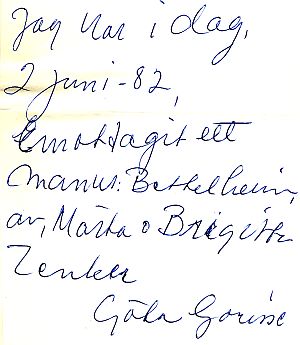 Jag har i dag,
2 juni - 82,
Emottagit ett
manus: Bettelheim,
av, Märta o Brigitte
Zenker
Göta